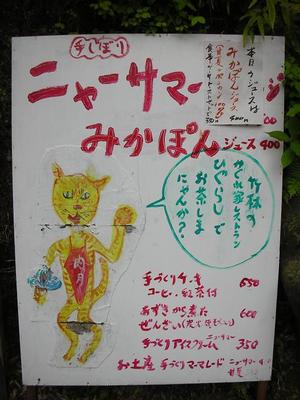 手しぼり
ニャーサマー
みかぽん ジュース 400
本日のジュースは
みかぽんジュース
400円
竹林の
かくれ家レストラン
ひぐらしで
お茶しま
にゃんか?
手づくりケーキ 650
コーヒー、紅茶付
あずきから煮た 600
ぜんざい
手づくりアイスクリーム 350
お土産 手づくりマーマレード ニューサマー
甘夏